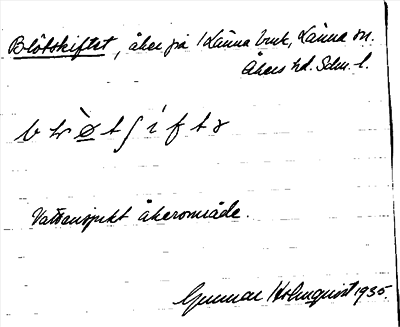 Blötskiftet, åker på Länna bruk, Länna sn.
Åkers hd. Sdm. l.
Vattensjukt åkerområde.
Gunnar Holmqvist 1935.